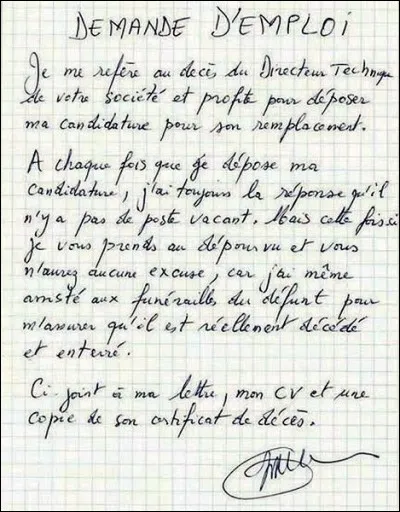 DEMANDE D'EMPLOI
Je me refère au decès du Directeur Technique
de votre société et profite pour déposer
ma candidature pour son remplacement.
A chaque fois que je dépose ma
candidature, j'ai toujours la réponse qu'il
n'y a pas de poste vacant. Mais cette fois ci
je vous prends au dépourvu et vous
n'aurez aucune excuse, car j'ai même
assisté aux funérailles du défunt pour
m'assurer qu'il est réellement décédé
et enterré.
Ci joint à ma lettre, mon CV et une
copie de son certificat de décès.